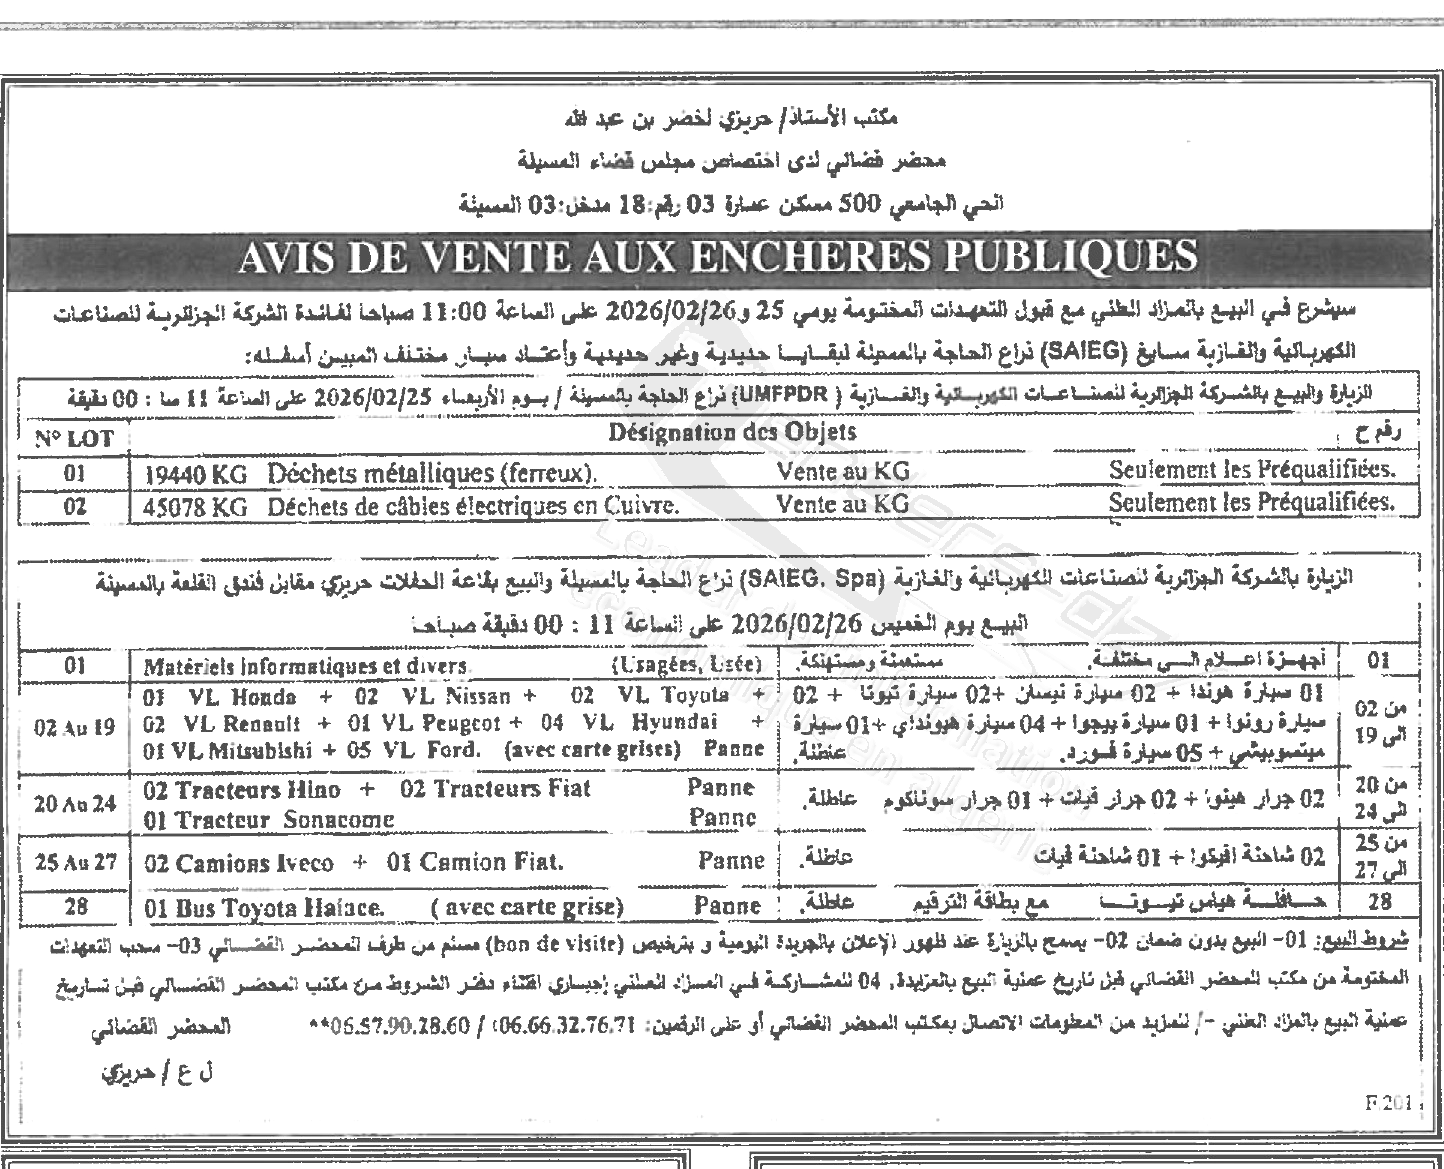 مكتب الأستاذ/ حريزي لخضر بن عبد الله
محضر قضائي لدى اختصاص مجلس قضاء المسيلة
الحي الجامعي 500 مسكن عمارة 03 رقم:18 مدخل:03 المسيلة
AVIS DE VENTE AUX ENCHERES PUBLIQUES
سيشرع في البيع بالمزاد العلني مع قبول التعهدات المختومة يومي 25 و2026/02/26 على الساعة 11:00 صباحا لفائدة الشركة الجزائرية للصناعات
الكهربائية والغازية سايغ (SAIEG) ذراع الحاجة بالمسيلة لبقايا حديدية وغير حديدية وأعتاد سيار مختلف المبين أسفله:
الزيارة والبيع بالشركة الجزائرية للصناعات الكهربائية والغازية ( UMFPDR) ذراع الحاجة بالمسيلة / يوم الأربعاء 2026/02/25 على الساعة 11 سا : 00 دقيقة
N° LOT Désignation des Objets رقم ح
01 19440 KG Déchets métalliques (ferreux). Vente au KG Seulement les Préqualifiées.
02 45078 KG Déchets de câbles électriques en Cuivre. Vente au KG Seulement les Préqualifiées.
الزيارة بالشركة الجزائرية للصناعات الكهربائية والغازية (SAIEG. Spa) ذراع الحاجة بالمسيلة والبيع بقاعة الحفلات حريزي مقابل فندق القلعة بالمسيلة
البيع يوم الخميس 2026/02/26 على الساعة 11 : 00 دقيقة صباحا
01 Matériels informatiques et divers. (Usagées, Usée) أجهزة اعلام الي مختلفة. مستعملة ومستهلكة. 01
01 VL Honda + 02 VL Nissan + 02 VL Toyota + 01 سيارة هوندا + 02 سيارة نيسان +02 سيارة تيوتا + 02 من 02
02 Au 19 02 VL Renault + 01 VL Peugeot + 04 VL Hyundai + سيارة رونوا + 01 سيارة بيجوا + 04 سيارة هيونداي +01 سيارة الى 19
01 VL Mitsubishi + 05 VL Ford. (avec carte grises) Panne ميتسوبيشي + 05 سيارة فورد. عاطلة.
20 Au 24 02 Tracteurs Hino + 02 Tracteurs Fiat Panne 02 جرار هينوا + 02 جرار فيات + 01 جرار سوناكوم عاطلة. من 20
01 Tracteur Sonacome Panne الى 24
25 Au 27 02 Camions Iveco + 01 Camion Fiat. Panne 02 شاحنة افيكوا + 01 شاحنة فيات عاطلة. من 25
الى 27
28 01 Bus Toyota Haiace. ( avec carte grise) Panne حافلة هياس تيوتا مع بطاقة الترقيم عاطلة. 28
شروط البيع: 01- البيع بدون ضمان 02- يسمح بالزيارة عند ظهور الإعلان بالجريدة اليومية و بترخيص (bon de visite) مسلم من طرف المحضر القضائي 03- سحب التعهدات
المختومة من مكتب المحضر القضائي قبل تاريخ عملية البيع بالمزايدة. 04 للمشاركة في المزاد العلني إجباري اقتناء دفتر الشروط من مكتب المحضر القضائي قبل تاريخ
عملية البيع بالمزاد العلني -/ للمزيد من المعلومات الاتصال بمكتب المحضر القضائي أو على الرقمين: 06.66.32.76.71 / 06.57.90.28.60**
المحضر القضائي
ل ع / حريزي
F 201